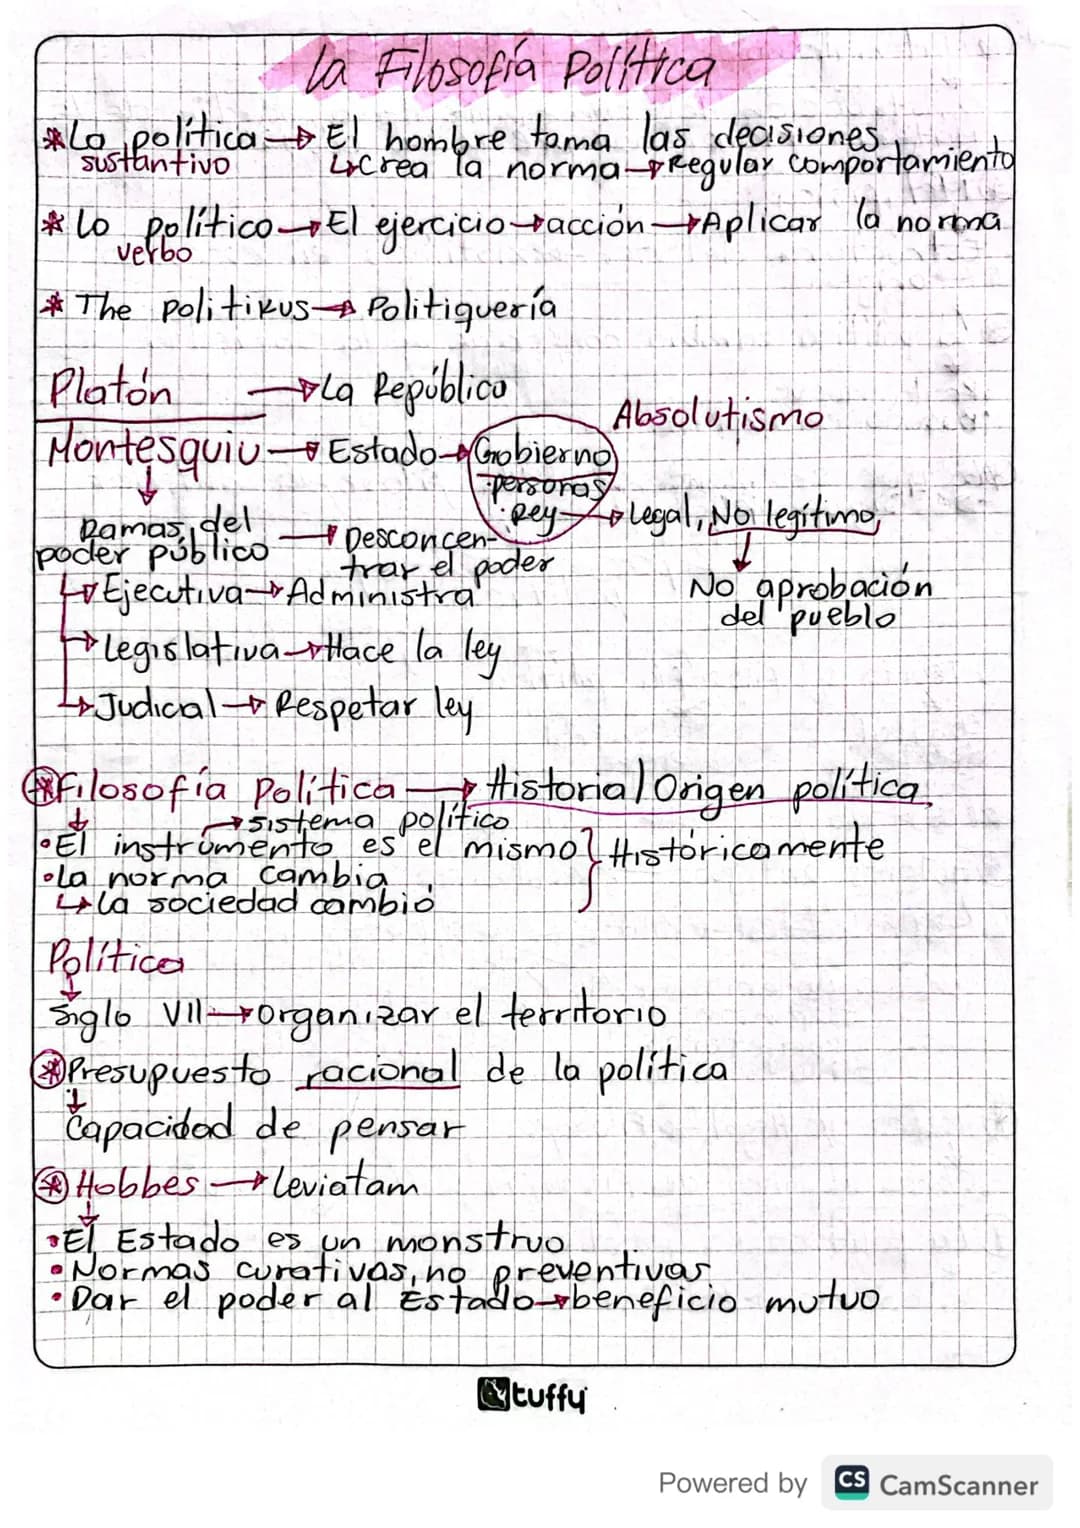 La Filosofía Política
*La política → El hombre toma las decisiones.
sustantivo ↳ Crea la norma → Regular comportamiento
* Lo político → El ejercicio → acción → Aplicar la norma
verbo
* The politikus → Politiquería
Platón → La República
Absolutismo
Montesquiu → Estado → Gobierno
personas
Rey → Legal, No legítimo,
Ramas del poder público → Desconcen-
trar el poder
No aprobación
del pueblo
↳ Ejecutiva → Administra
↳ Legislativa → Hace la ley
↳ Judicial → Respetar ley
* Filosofía Política → Historia/Origen política.
→ sistema político
• El instrumento es el mismo } Históricamente
• La norma cambia
↳ La sociedad cambió
Política
Siglo VII → organizar el territorio
* Presupuesto racional de la política
Capacidad de pensar
* Hobbes → Leviatam
• El Estado es un monstruo
• Normas curativas, no preventivas
• Dar el poder al Estado → beneficio mutuo
tuffy
Powered by CS CamScanner